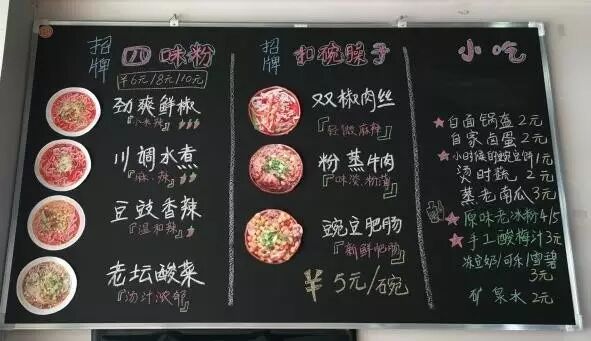 招牌
四味粉
¥6元/8元/10元
劲爽鲜椒
『小米辣』
川调水煮
『麻、辣』
豆豉香辣
『温和辣』
老坛酸菜
『汤汁浓郁』
招牌
扣碗臊子
双椒肉丝
『轻微麻辣』
粉蒸牛肉
豌豆肥肠
『新鲜肥肠』
¥5元/碗
小吃
★白面锅盔 2元
自家卤蛋 2元
★小时候的豌豆饼1元
烫时蔬 2元
蒸老南瓜 3元
★原味老冰粉 4/5
★手工酸梅汁 3元
冰豆奶/可乐/雪碧
3元
矿泉水 2元